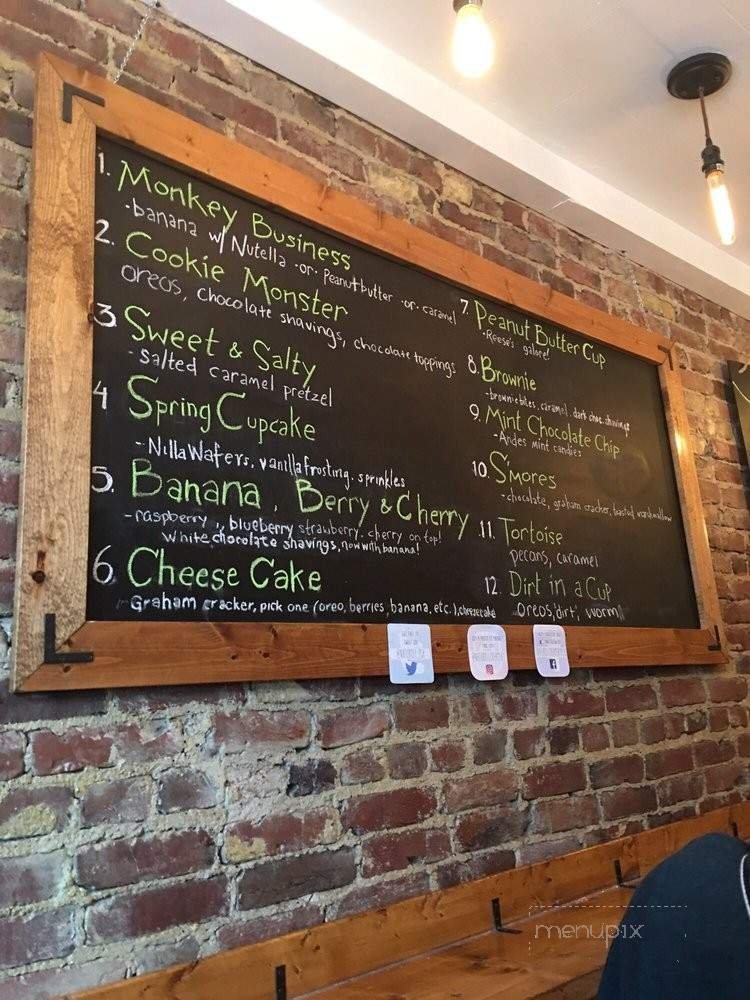 1. Monkey Business
-banana w/ Nutella -or- Peanutbutter -or- caramel
2. Cookie Monster
oreos, chocolate shavings, chocolate toppings
3. Sweet & Salty
-salted caramel pretzel
4 Spring Cupcake
-Nilla Wafers, vanilla frosting, sprinkles
5. Banana, Berry & Cherry
-raspberry, blueberry strawberry, cherry on top!
white chocolate shavings, now with banana!
6. Cheese Cake
-Graham cracker, pick one (oreo, berries, banana, etc.), cheesecake
7. Peanut Butter Cup
-Reese's galore!
8. Brownie
-brownie bites, caramel, dark choc. shavings
9. Mint Chocolate Chip
-Andes mint candies
10. S'mores
-chocolate, graham cracker, toasted marshmallow
11. Tortoise
pecans, caramel
12. Dirt in a Cup
Oreos, dirt, worm
menupix